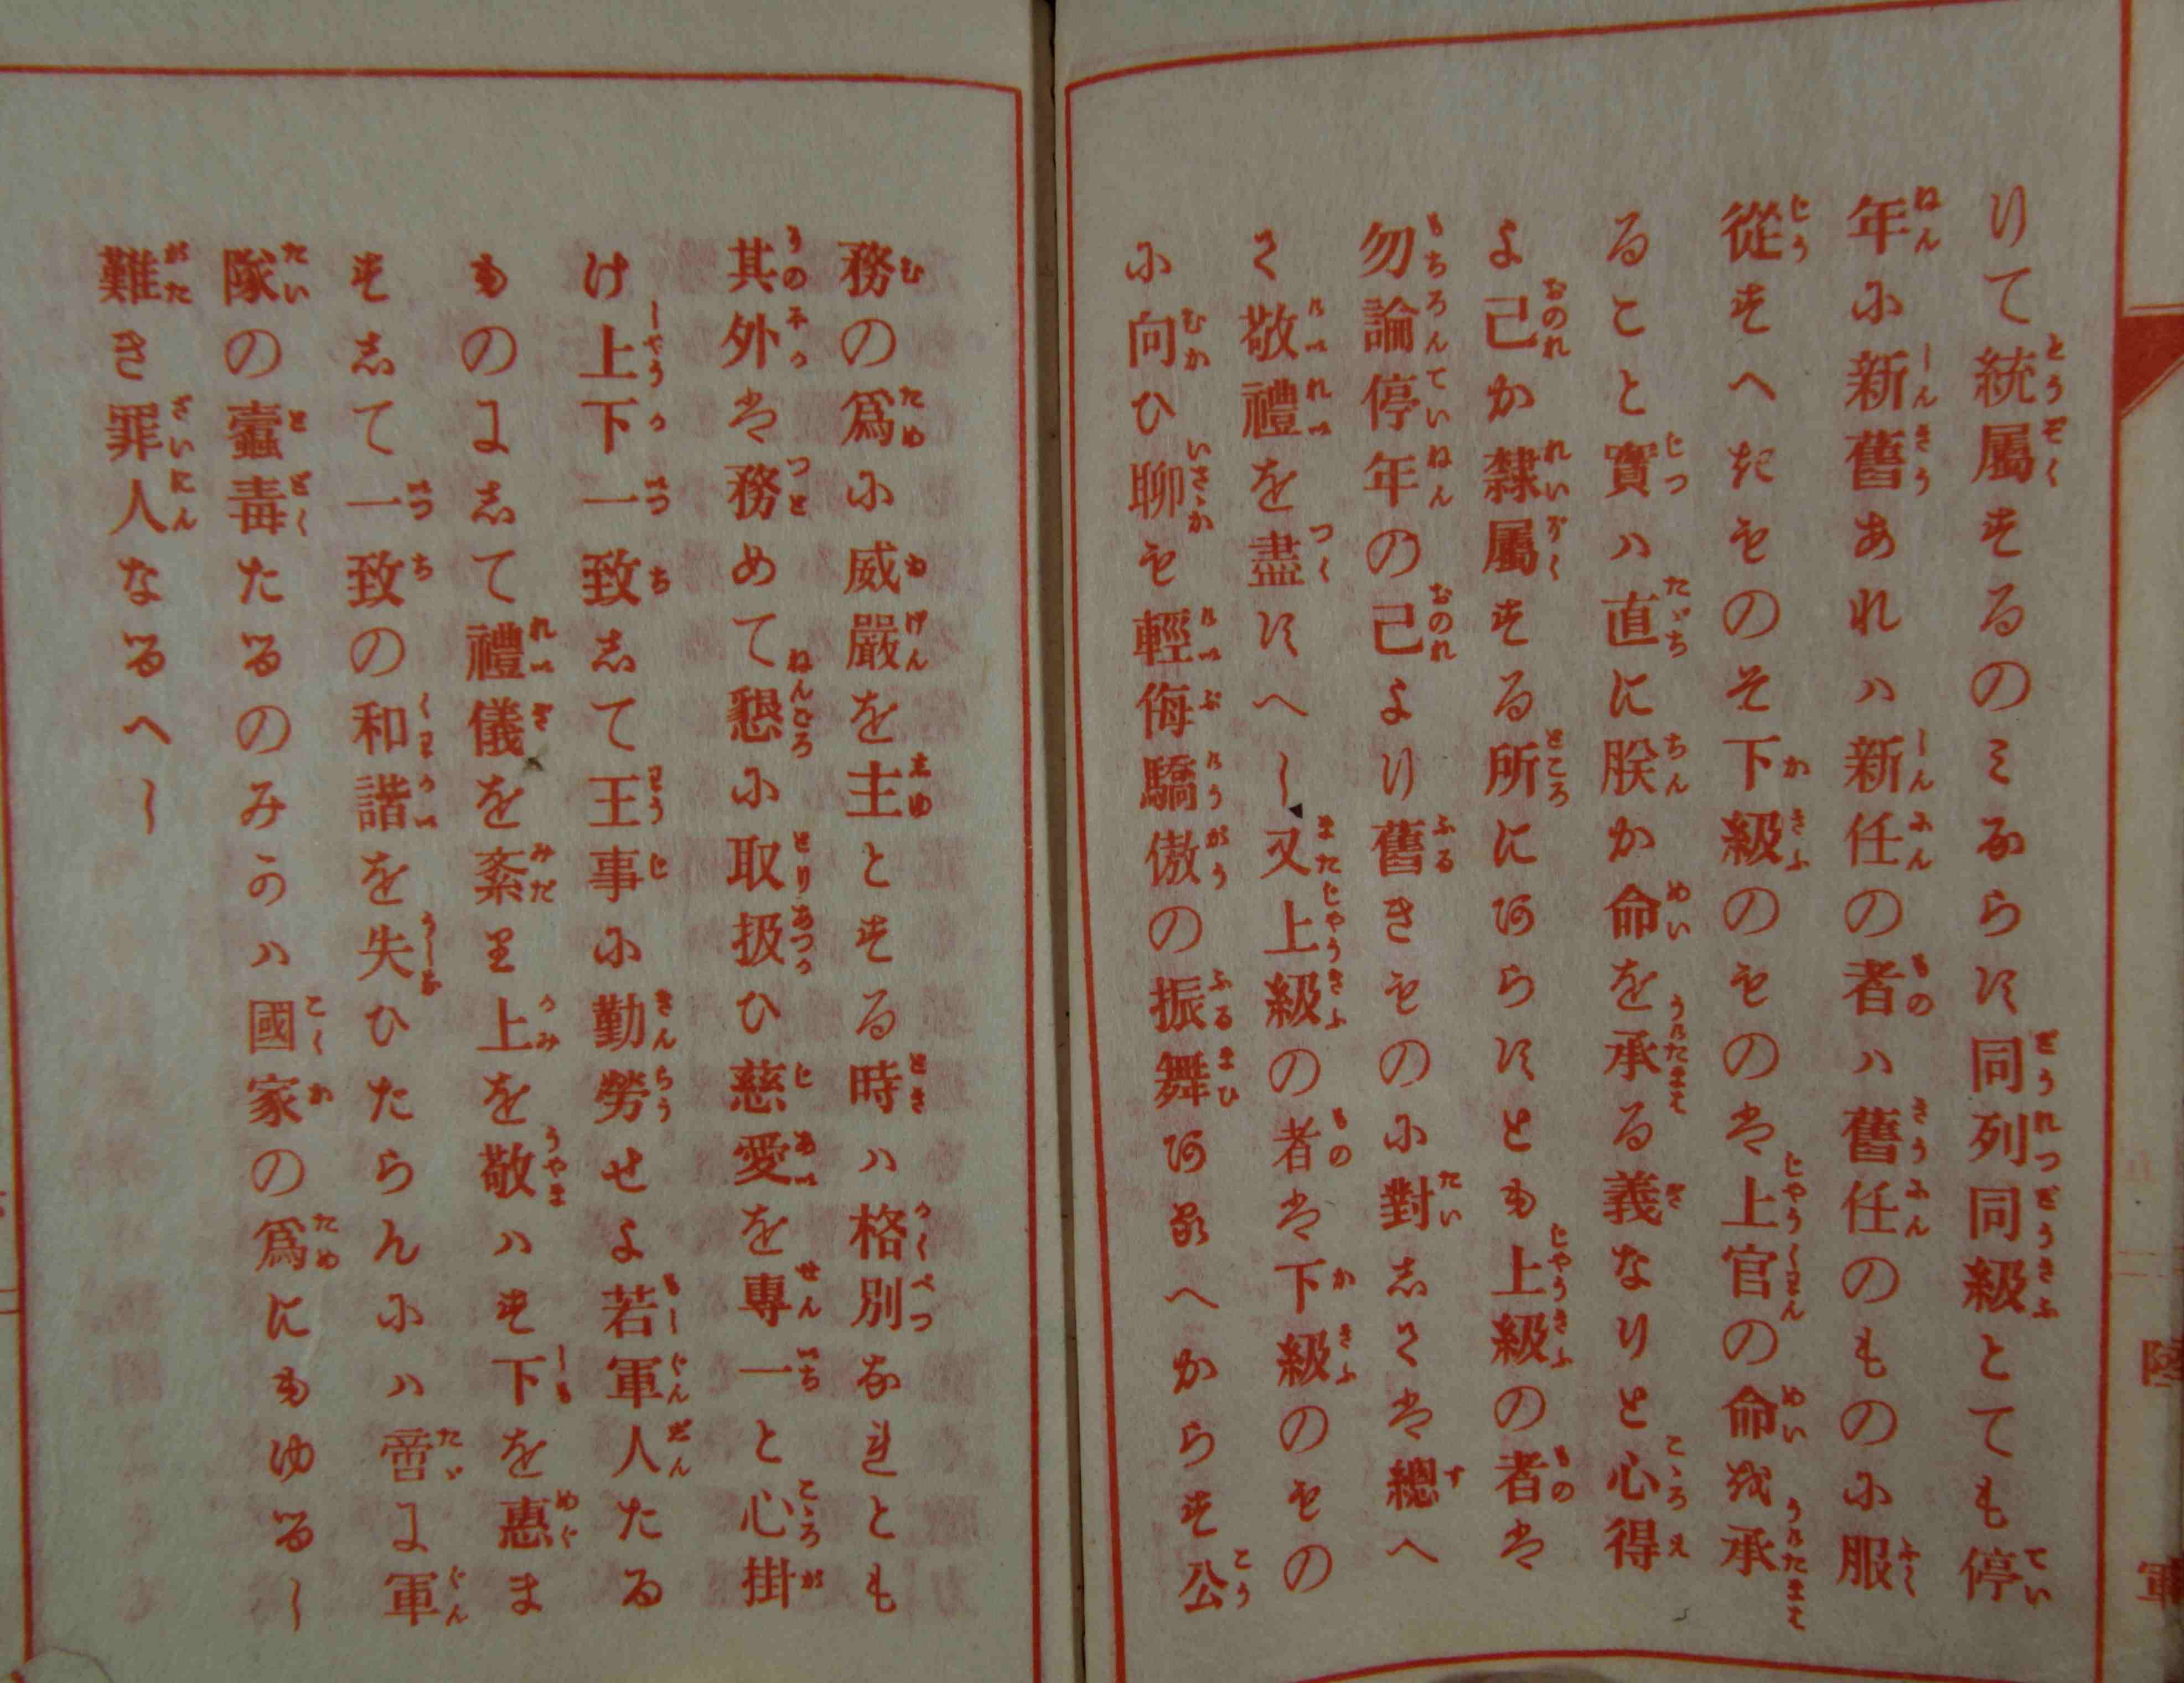 りて統屬するのミならす同列同級とても停
年に新舊あれハ新任の者ハ舊任のものに服
從すへきものそ下級のものは上官の命を承
ること實ハ直に朕か命を承る義なりと心得
よ己か隷屬する所にあらすとも上級の者は
勿論停年の己より舊きものに對しては總へ
て敬禮を盡すへし又上級の者は下級のもの
に向ひ聊も輕侮驕傲の振舞あるへからす公
務の爲に威嚴を主とする時ハ格別なれとも
其外は務めて懇に取扱ひ慈愛を專一と心掛
け上下一致して王事に勤勞せよ若軍人たる
ものにして禮儀を紊り上を敬ハす下を惠ま
すして一致の和諧を失ひたらんにハ啻に軍
隊の蠹毒たるのみかハ國家の爲にもゆるし
難き罪人なるへし